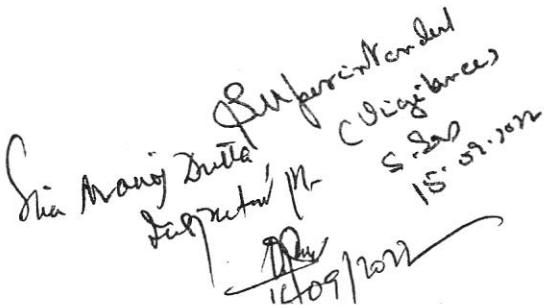 Superintendent
(Vigilance)
S. Das
15.09.2022
Shri Manoj Dutta,
Inspector
15/09/2022